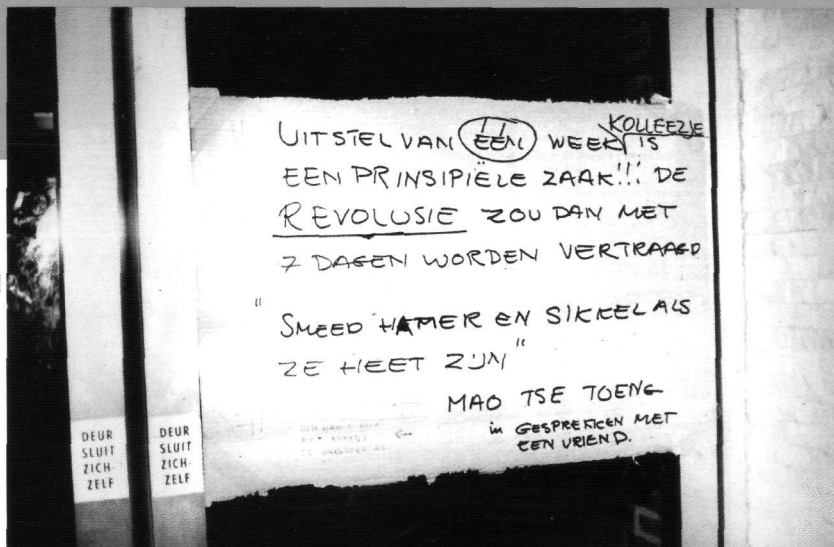 KOLLEEZJE
UITSTEL VAN EEN WEEK IS
EEN PRINSIPIËLE ZAAK!!! DE
REVOLUSIE ZOU DAN MET
7 DAGEN WORDEN VERTRAAGD
"SMEED HAMER EN SIKKEL ALS
ZE HEET ZIJN"
MAO TSE TOENG
in GESPREKKEN MET
EEN VRIEND.
DEUR
SLUIT
ZICH-
ZELF
DEUR
SLUIT
ZICH-
ZELF